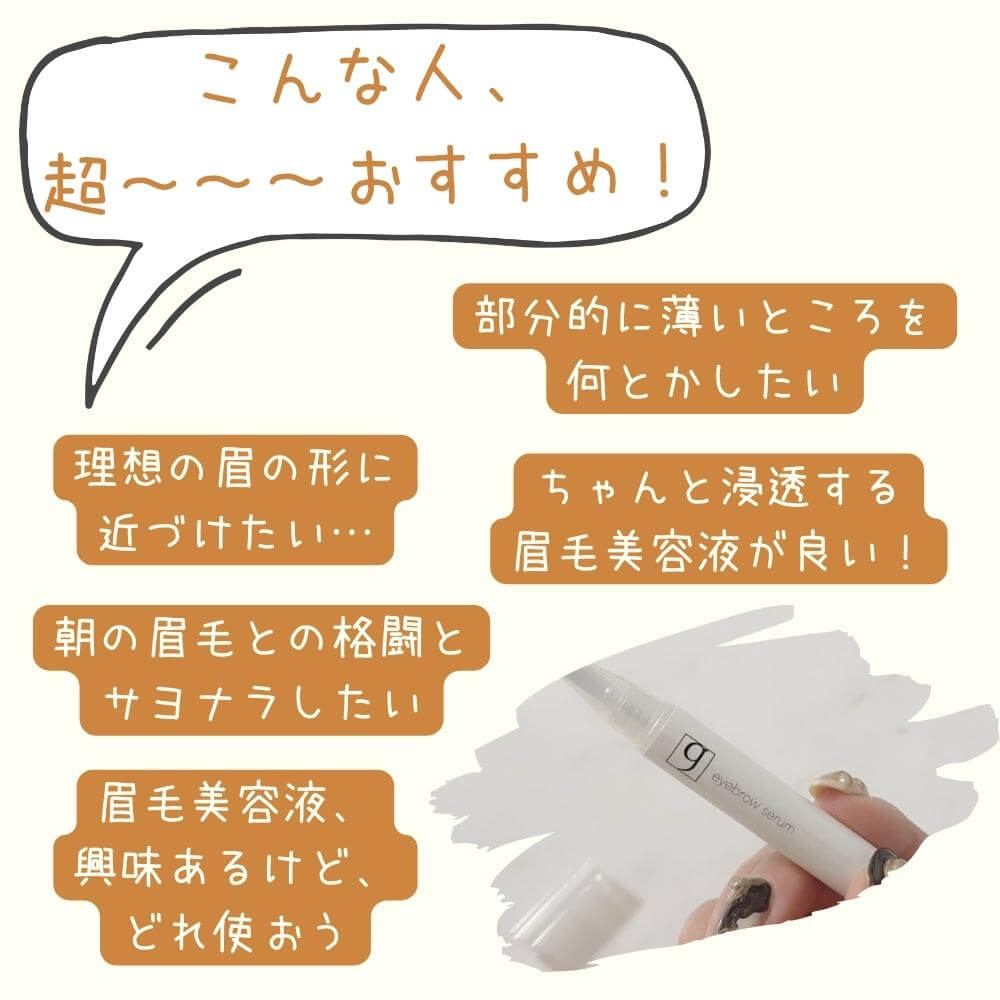 こんな人、
超〜〜〜おすすめ！
部分的に薄いところを
何とかしたい
理想の眉の形に
近づけたい…
ちゃんと浸透する
眉毛美容液が良い！
朝の眉毛との格闘と
サヨナラしたい
眉毛美容液、
興味あるけど、
どれ使おう
g
eyebrow serum